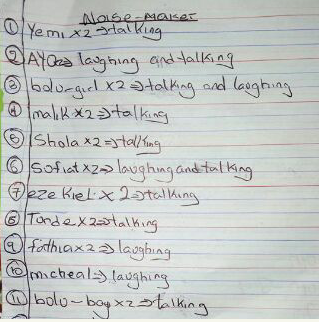 Noise-maker
① Yemi x2 ⇒ talking
② Ayo ⇒ laughing and talking
③ bolu-girl x2 ⇒ talking and laughing
④ malik x2 ⇒ talking
⑤ Shola x2 ⇒ talking
⑥ Sofiat x2 ⇒ laughing and talking
⑦ eze kiel x 2 ⇒ talking
⑧ Tonde x2 ⇒ talking
⑨ fathia x2 ⇒ laughing
⑩ micheal ⇒ laughing
⑪ bolu-boy x2 ⇒ talking